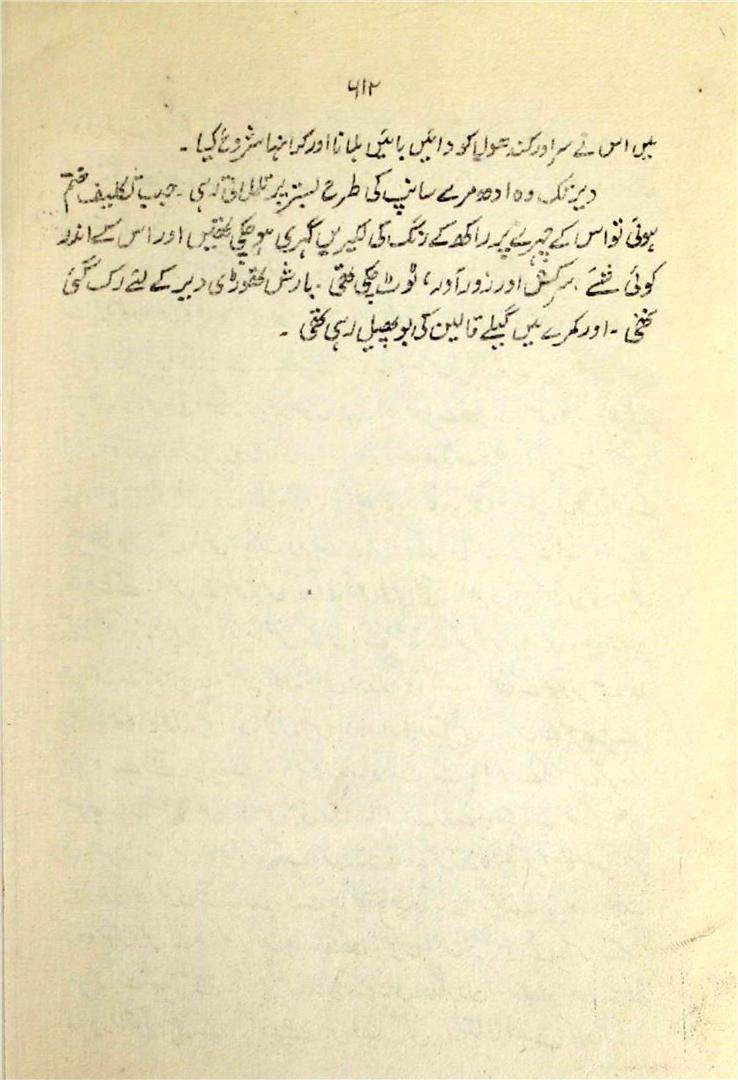 ۶۱۲
میں اس نے سر اور کندھوں کو دائیں بائیں ہلانا اور کراہنا شروع کیا ۔
دیر تک وہ ادھ مرے سانپ کی طرح بستر پر تلملاتی رہی ۔ جب تکلیف ختم
ہوئی تو اس کے چہرے پر راکھ کے رنگ کی لکیریں گہری ہو چکی تھیں اور اس کے اندر
کوئی شئے ، سرکش اور زور آور ، ٹوٹ چکی تھی ۔ بارش تھوڑی دیر کے لئے رک گئی
تھی ۔ اور کمرے میں گیلے قالین کی بو پھیل رہی تھی ۔